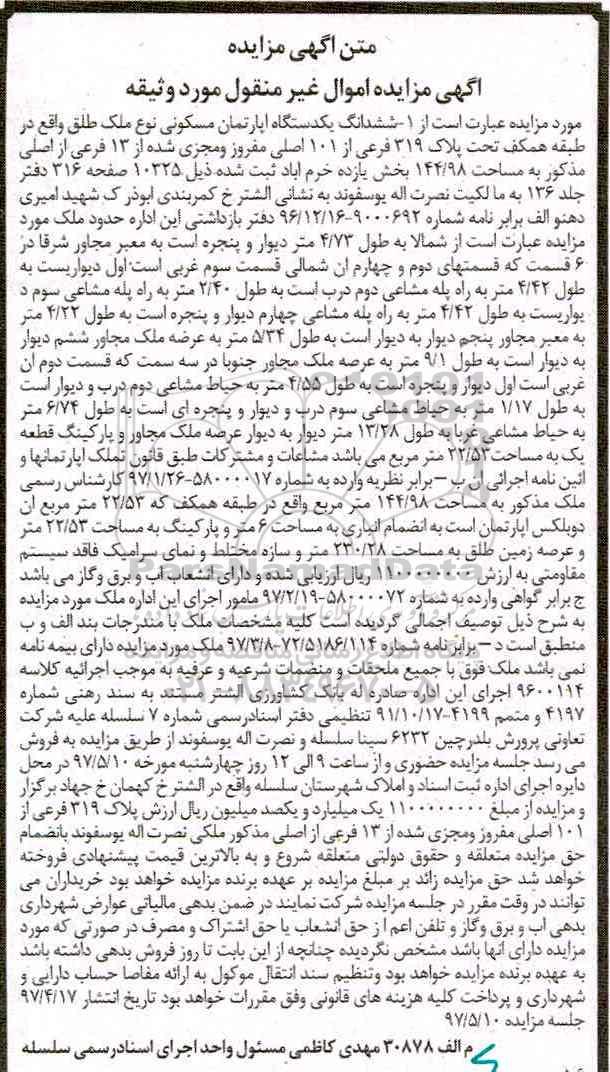 متن آگهی مزایده
آگهی مزایده اموال غیر منقول مورد وثیقه
مورد مزایده عبارت است از ۱-ششدانگ یکدستگاه اپارتمان مسکونی نوع ملک طلق واقع در
طبقه همکف تحت پلاک ۳۱۹ فرعی از ۱۰۱ اصلی مفروز ومجزی شده از ۱۳ فرعی از اصلی
مذکور به مساحت ۱۴۴/۹۸ بخش یازده خرم اباد ثبت شده ذیل ۱۰۳۲۵ صفحه ۳۱۶ دفتر
جلد ۱۳۶ به ما لکیت نصرت اله یوسفوند به نشانی الشتر خ کمربندی ابوذر ک شهید امیری
دهنو الف برابر نامه شماره ۹۰۰۰۶۹۲-۹۶/۱۲/۱۶ دفتر بازداشتی این اداره حدود ملک مورد
مزایده عبارت است از شمالا به طول ۴/۷۳ متر دیوار و پنجره است به معبر مجاور شرقا در
۶ قسمت که قسمتهای دوم و چهارم ان شمالی قسمت سوم غربی است اول دیواریست به
طول ۴/۴۲ متر به راه پله مشاعی دوم درب است به طول ۲/۴۰ متر به راه پله مشاعی سوم د
یواریست به طول ۴/۴۲ متر به راه پله مشاعی چهارم دیوار و پنجره است به طول ۴/۲۲ متر
به معبر مجاور پنجم دیوار به دیوار است به طول ۵/۳۴ متر به عرضه ملک مجاور ششم دیوار
به دیوار است به طول ۹/۱ متر به عرصه ملک مجاور جنوبا در سه سمت که قسمت دوم ان
غربی است اول دیوار و پنجره است به طول ۴/۵۵ متر به حیاط مشاعی دوم درب و دیوار است
به طول ۱/۱۷ متر به حیاط مشاعی سوم درب و دیوار و پنجره ای است به طول ۶/۷۴ متر
به حیاط مشاعی غربا به طول ۱۳/۲۸ متر دیوار به دیوار عرصه ملک مجاور و پارکینگ قطعه
یک به مساحت۲۲/۵۳ متر مربع می باشد مشاعات و مشترکات طبق قانون تملک اپارتمانها و
ائین نامه اجرائی ان ب –برابر نظریه وارده به شماره ۵۸۰۰۰۰۱۷-۹۷/۱/۲۶ کارشناس رسمی
ملک مذکور به مساحت ۱۴۴/۹۸ متر مربع واقع در طبقه همکف که ۲۲/۵۳ متر مربع ان
دوبلکس اپارتمان است به انضمام انباری به مساحت ۶ متر و پارکینگ به مساحت ۲۲/۵۳ متر
و عرصه زمین طلق به مساحت ۲۳۰/۲۸ متر و سازه مختلط و نمای سرامیک فاقد سیستم
مقاومتی به ارزش ۱۱۰۰۰۰۰۰۰۰ ریال ارزیابی شده و دارای انشعاب اب و برق وگاز می باشد
ج برابر گواهی وارده به شماره ۵۸۰۰۰۰۷۲-۹۷/۲/۱۹ مامور اجرای این اداره ملک مورد مزایده
به شرح ذیل توصیف اجمالی گردیده است کلیه مشخصات ملک با مندرجات بند الف و ب
منطبق است د – برابرنامه شماره ۷۲/۵۱۸۶/۱۱۴-۹۷/۳/۸ ملک مورد مزایده دارای بیمه نامه
نمی باشد ملک فوق با جمیع ملحقات و منضمات شرعیه و عرفیه به موجب اجرائیه کلاسه
۹۶۰۰۱۱۴ اجرای این اداره صادره له بانک کشاورزی الشتر مستند به سند رهنی شماره
۴۱۹۷ و متمم ۴۱۹۹-۹۱/۱۰/۱۷ تنظیمی دفتر اسنادرسمی شماره ۷ سلسله علیه شرکت
تعاونی پرورش بلدرچین ۶۲۳۲ سینا سلسله و نصرت اله یوسفوند از طریق مزایده به فروش
می رسد جلسه مزایده حضوری و از ساعت ۹ الی ۱۲ روز چهارشنبه مورخه ۹۷/۵/۱۰ در محل
دایره اجرای اداره ثبت اسناد و املاک شهرستان سلسله واقع در الشتر خ کهمان خ جهاد برگزار
و مزایده از مبلغ ۱۱۰۰۰۰۰۰۰۰ یک میلیارد و یکصد میلیون ریال ارزش پلاک ۳۱۹ فرعی از
۱۰۱ اصلی مفروز ومجزی شده از ۱۳ فرعی از اصلی مذکور ملکی نصرت اله یوسفوند بانضمام
حق مزایده متعلقه و حقوق دولتی متعلقه شروع و به بالاترین قیمت پیشنهادی فروخته
خواهد شد حق مزایده زائد بر مبلغ مزایده بر عهده برنده مزایده خواهد بود خریداران می
توانند در وقت مقرر در جلسه مزایده شرکت نمایند در ضمن بدهی مالیاتی عوارض شهرداری
بدهی اب و برق وگاز و تلفن اعم ا ز حق انشعاب یا حق اشتراک و مصرف در صورتی که مورد
مزایده دارای انها باشد مشخص نگردیده چنانچه از این بابت تا روز فروش بدهی داشته باشد
به عهده برنده مزایده خواهد بود وتنظیم سند انتقال موکول به ارائه مفاصا حساب دارایی و
شهرداری و پرداخت کلیه هزینه های قانونی وفق مقررات خواهد بود تاریخ انتشار ۹۷/۴/۱۷
جلسه مزایده ۹۷/۵/۱۰
م الف ۳۰۸۷۸ مهدی کاظمی مسئول واحد اجرای اسنادرسمی سلسله
ParsNamadData